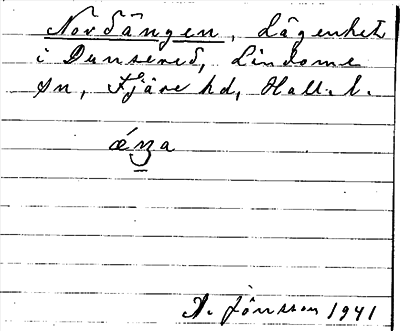 Nordängen, Lägenhet
i Dunsered, Lindome
sn, Fjäre hd, Hall. l.
A. Jönsson 1941